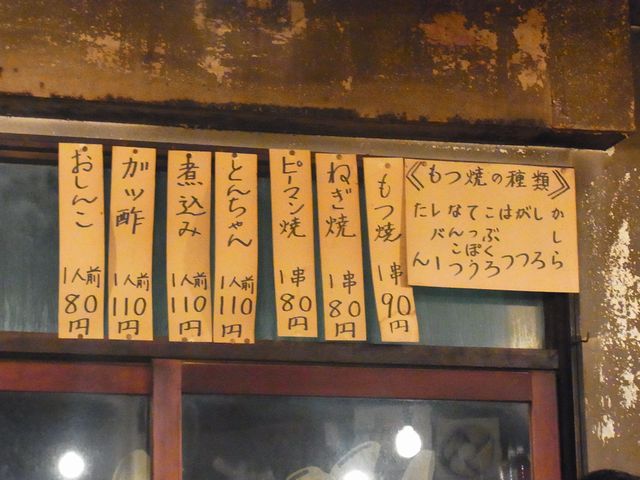 《もつ焼の種類》
かしら
しろ
がつ
はつ
こぶくろ
てっぽう
なんこつ
レバー
たん
もつ焼 1串 90円
ねぎ焼 1串 80円
ピーマン焼 1串 80円
とんちゃん 1人前 110円
煮込み 1人前 110円
ガツ酢 1人前 110円
おしんこ 1人前 80円